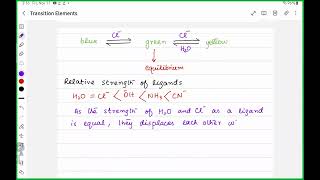 Transition Elements
Cl⁻ Cl⁻
blue ⇌ green ⇌ yellow
H₂O
equilibrium
Relative strength of ligands
H₂O = Cl⁻ < OH⁻ < NH₃ < CN⁻
As the strength of H₂O and Cl⁻ as a ligand
is equal, they displaces each other